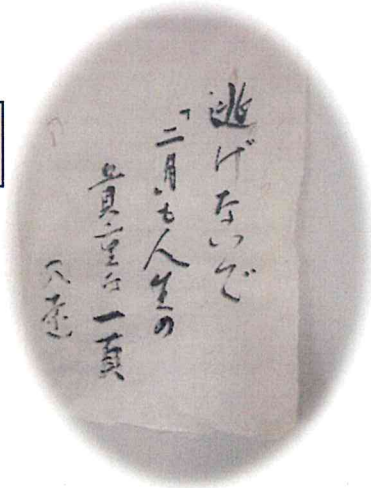 逃げないで
「二月」も人生の
貴重な一頁